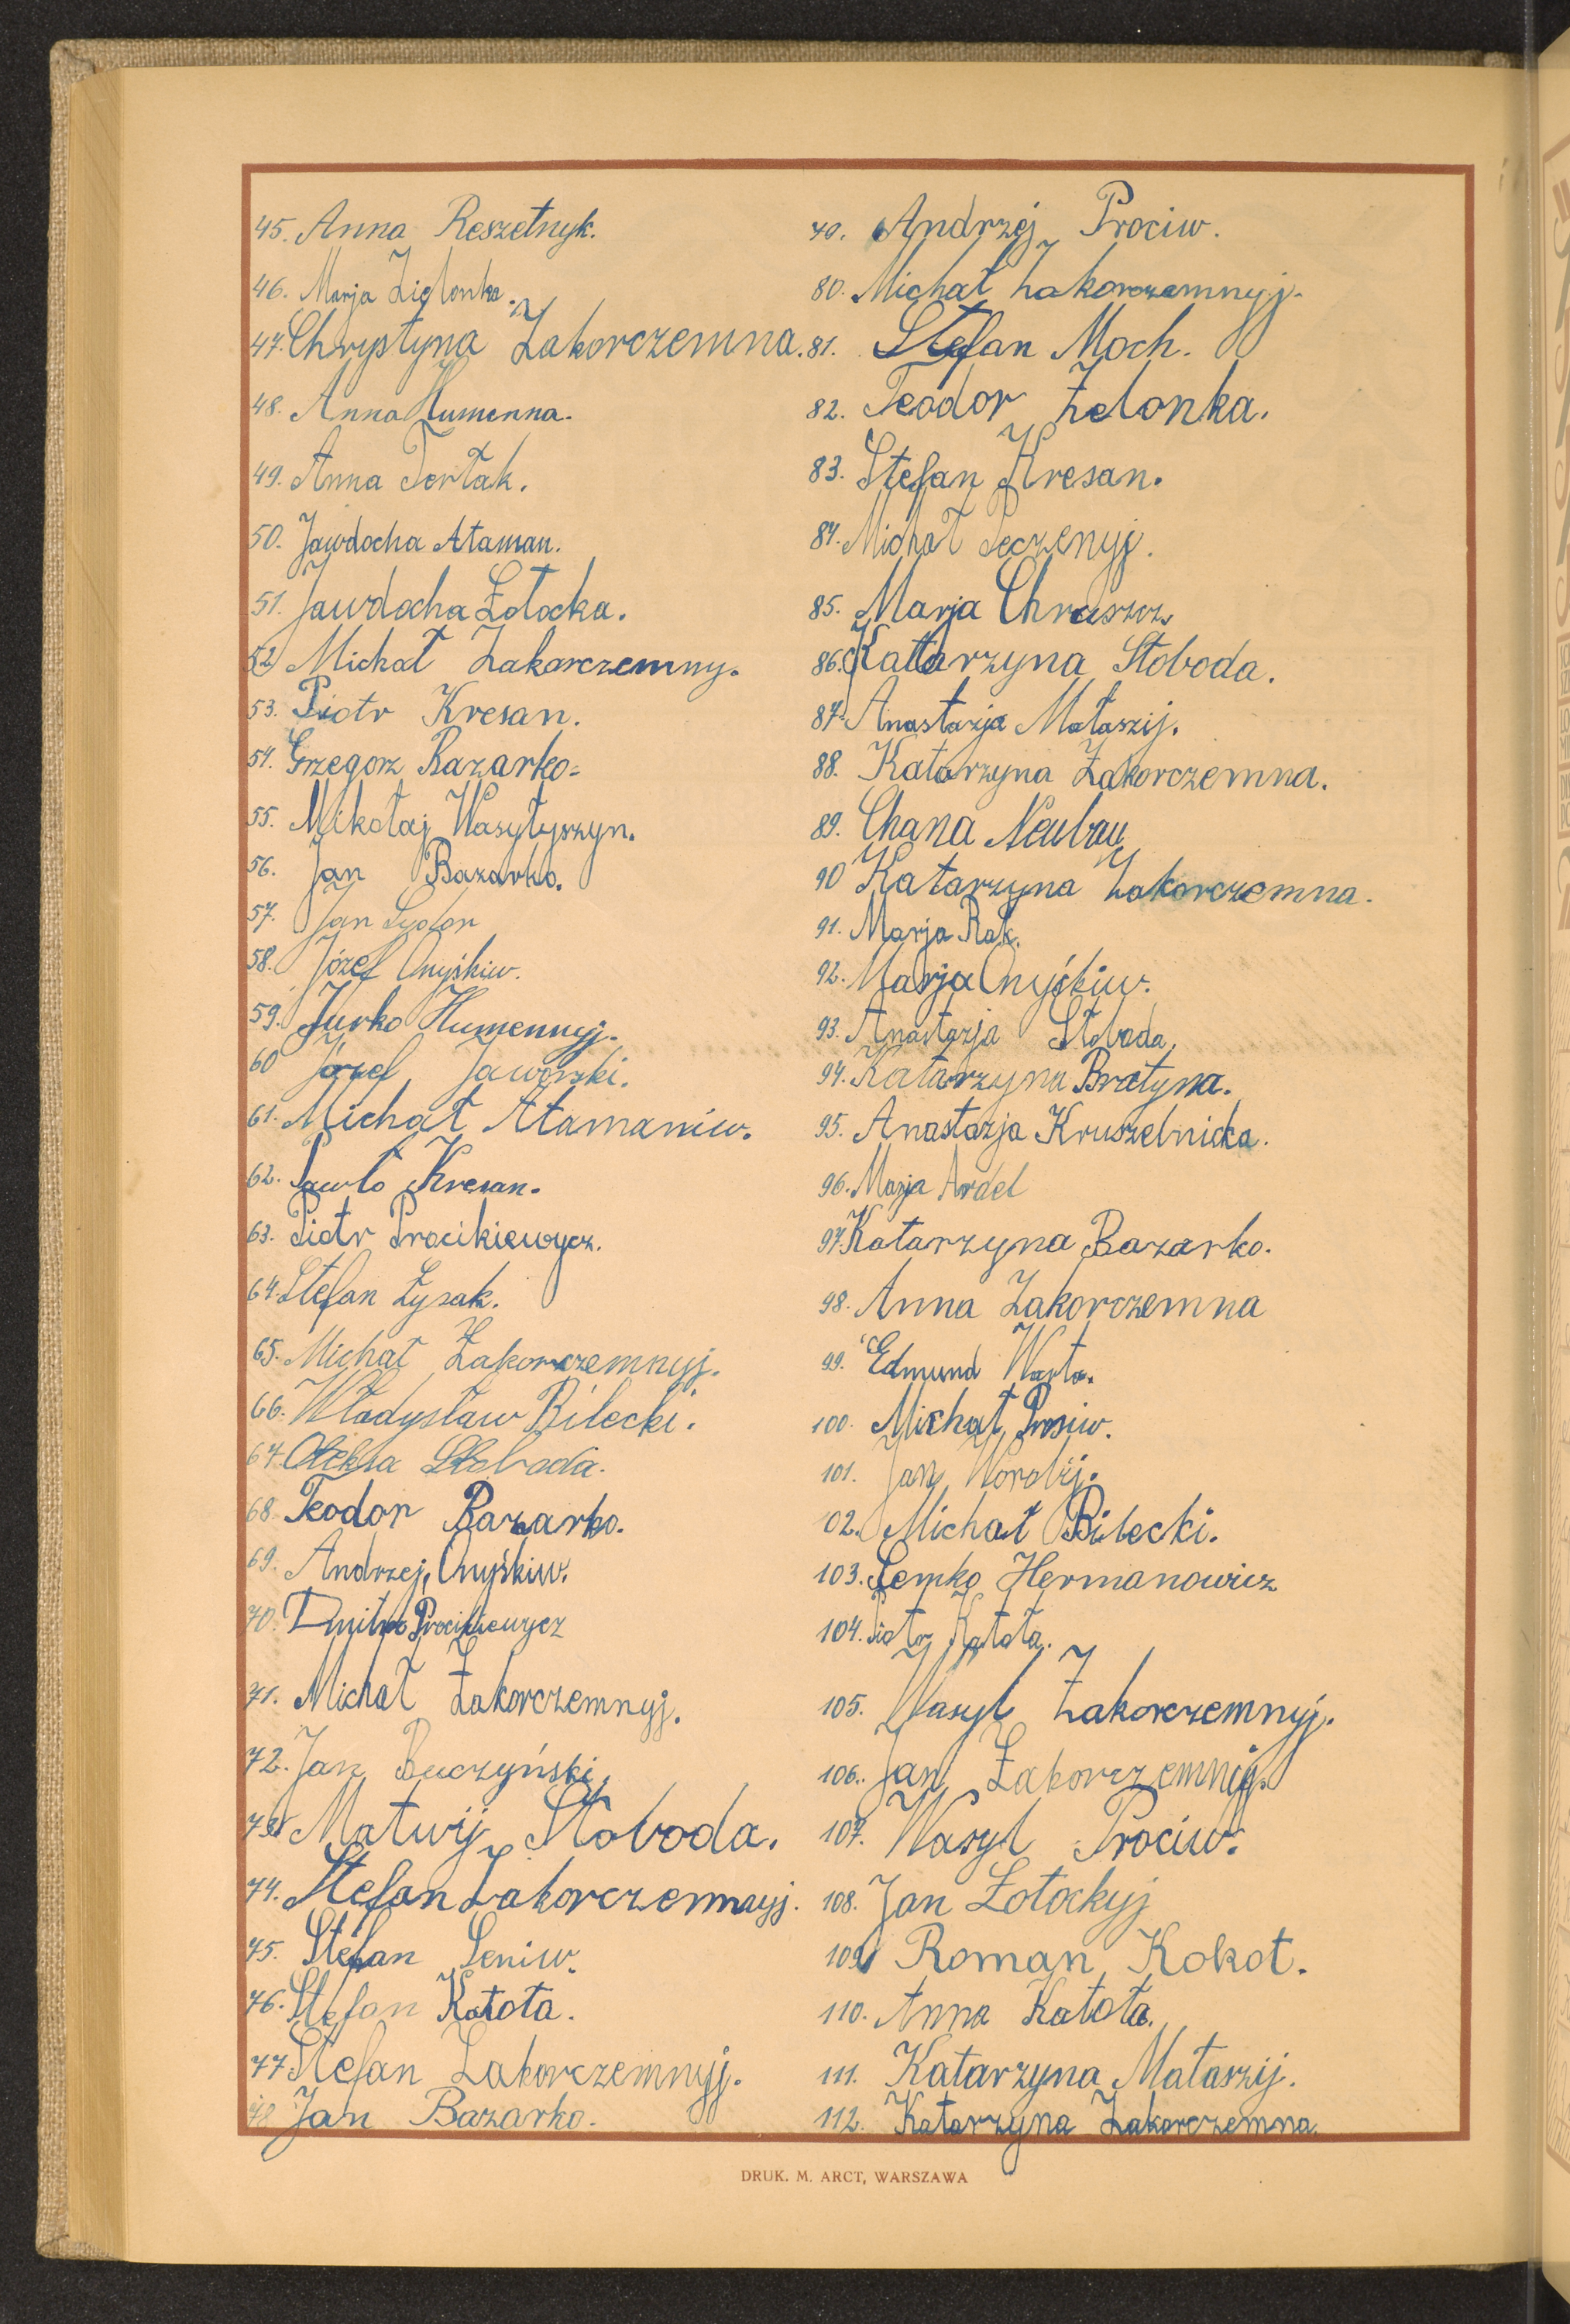 45. Anna Reszetnyk.
46. Marja Zielonka.
47. Chrystyna Zakorczemna.
48. Anna Humenna.
49. Anna Tertak.
50. Jawdocha Ataman.
51. Jawdocha Łotocka.
52. Michał Zakorczemny.
53. Piotr Kresan.
54. Grzegorz Bazarko.
55. Mikołaj Wasyłyszyn.
56. Jan Bazarko.
57. Jan
58. Józef Onyśkiw.
59. Jurko Humennyj.
60 Józef Jaworski.
61. Michał Atamaniw.
62. Pawło Kresan.
63. Piotr Procikiewycz.
64. Stefan Łysak.
65. Michał Zakorczemnyj.
66. Władysław Bilecki.
67. Oleksa Słoboda.
68. Teodor Bazarko.
69. Andrzej Onyśkiw.
70. Dmitro Procikiewycz
71. Michał Zakorczemnyj.
72. Jan Buczyński.
73. Matwij Słoboda.
74. Stefan Zakorczemnyj.
75. Stefan Seniw.
76. Stefan Katota.
77. Stefan Zakorczemnyj.
78 Jan Bazarko.
79. Andrzej Prociw.
80. Michał Zakorczemnyj.
81. Stefan Moch.
82. Teodor Zelonka.
83. Stefan Kresan.
84. Michał Peczenyj.
85. Marja Chruszcz.
86. Katarzyna Słoboda.
87. Anastazja Mataszij.
88. Katarzyna Zakorczemna.
89. Chana Neubau
90 Katarzyna Zakorczemna.
91. Marja Rak.
92. Marja Onyśkiw.
93. Anastazja Słoboda.
94. Katarzyna Bratyna.
95. Anastazja Kruszelnicka.
96. Marja Ardel
97. Katarzyna Bazarko.
98. Anna Zakorczemna
99. Edmund Warta.
100. Michał Prociw.
101. Jan Worobij.
102. Michał Bilecki.
103. Semko Hermanowicz
104. Piotr Katota.
105. Wasyl Zakorczemnyj.
106. Jan Zakorczemnyj.
107. Wasyl Prociw.
108. Jan Łotockyj
109 Roman Kokot.
110. Anna Katota.
111. Katarzyna Mataszij.
112. Katarzyna Zakorczemna.
DRUK. M. ARCT, WARSZAWA